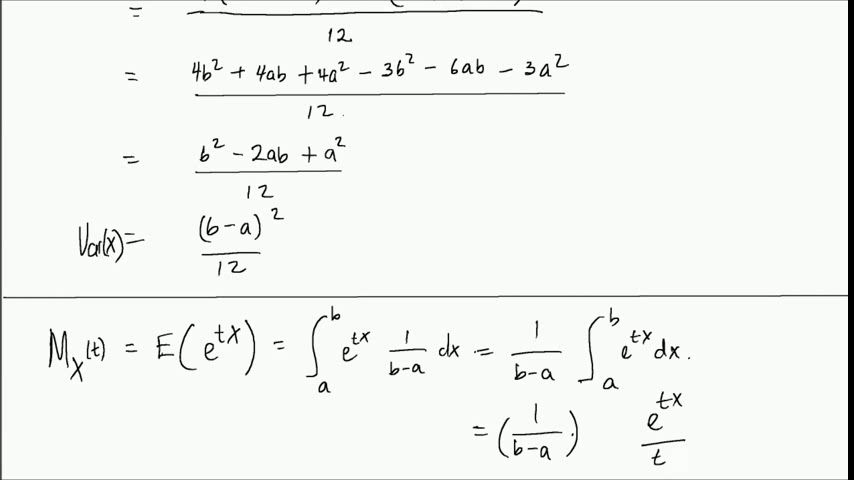 =
12
= 4b² + 4ab + 4a² - 3b² - 6ab - 3a²
12.
= b² - 2ab + a²
12
Var(x) = (b-a)²
12
M_X(t) = E(e^{tX}) = ∫_a^b e^{tx} 1/(b-a) dx = 1/(b-a) ∫_a^b e^{tx} dx.
= (1/(b-a)) e^{tx}/t